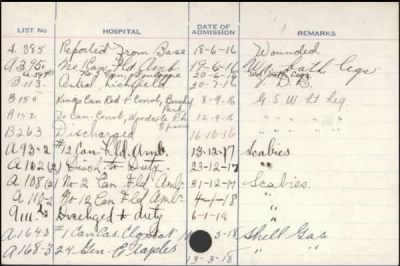 LIST NO HOSPITAL DATE OF ADMISSION REMARKS
A 385 Reported from Base 18-6-16 Wounded
A 395 No 1 Can Fld Amb 19-6-16 both legs
20-6-16
B 113 Central, Lichfield 20-7-16
B 150 Kings Can Red + Convl, Bushy Park 8-9-16 G.S.W. Lt Leg
B 152 Can. Convl, Woodcote Pk Epsom 12-9-16 " "
B 263 Discharged 16-10-16 " "
A 93-2 #12 Can. Fld. Amb. 13-12-17 Scabies
A 102 (2) Disch to Duty 23-12-17 "
A 108 (2) No 2 Can Fld Amb. 31-12-17 Scabies.
A 110-2 No 12 Can Fld Amb 4-1-18 "
A 111-2 Discharged to duty 6-1-18 "
A 164-3 #1 Can Cas Clg Stat 3-18 Shell Gas
A 168-3 24 Gen. Etaples 13-3-18 " "